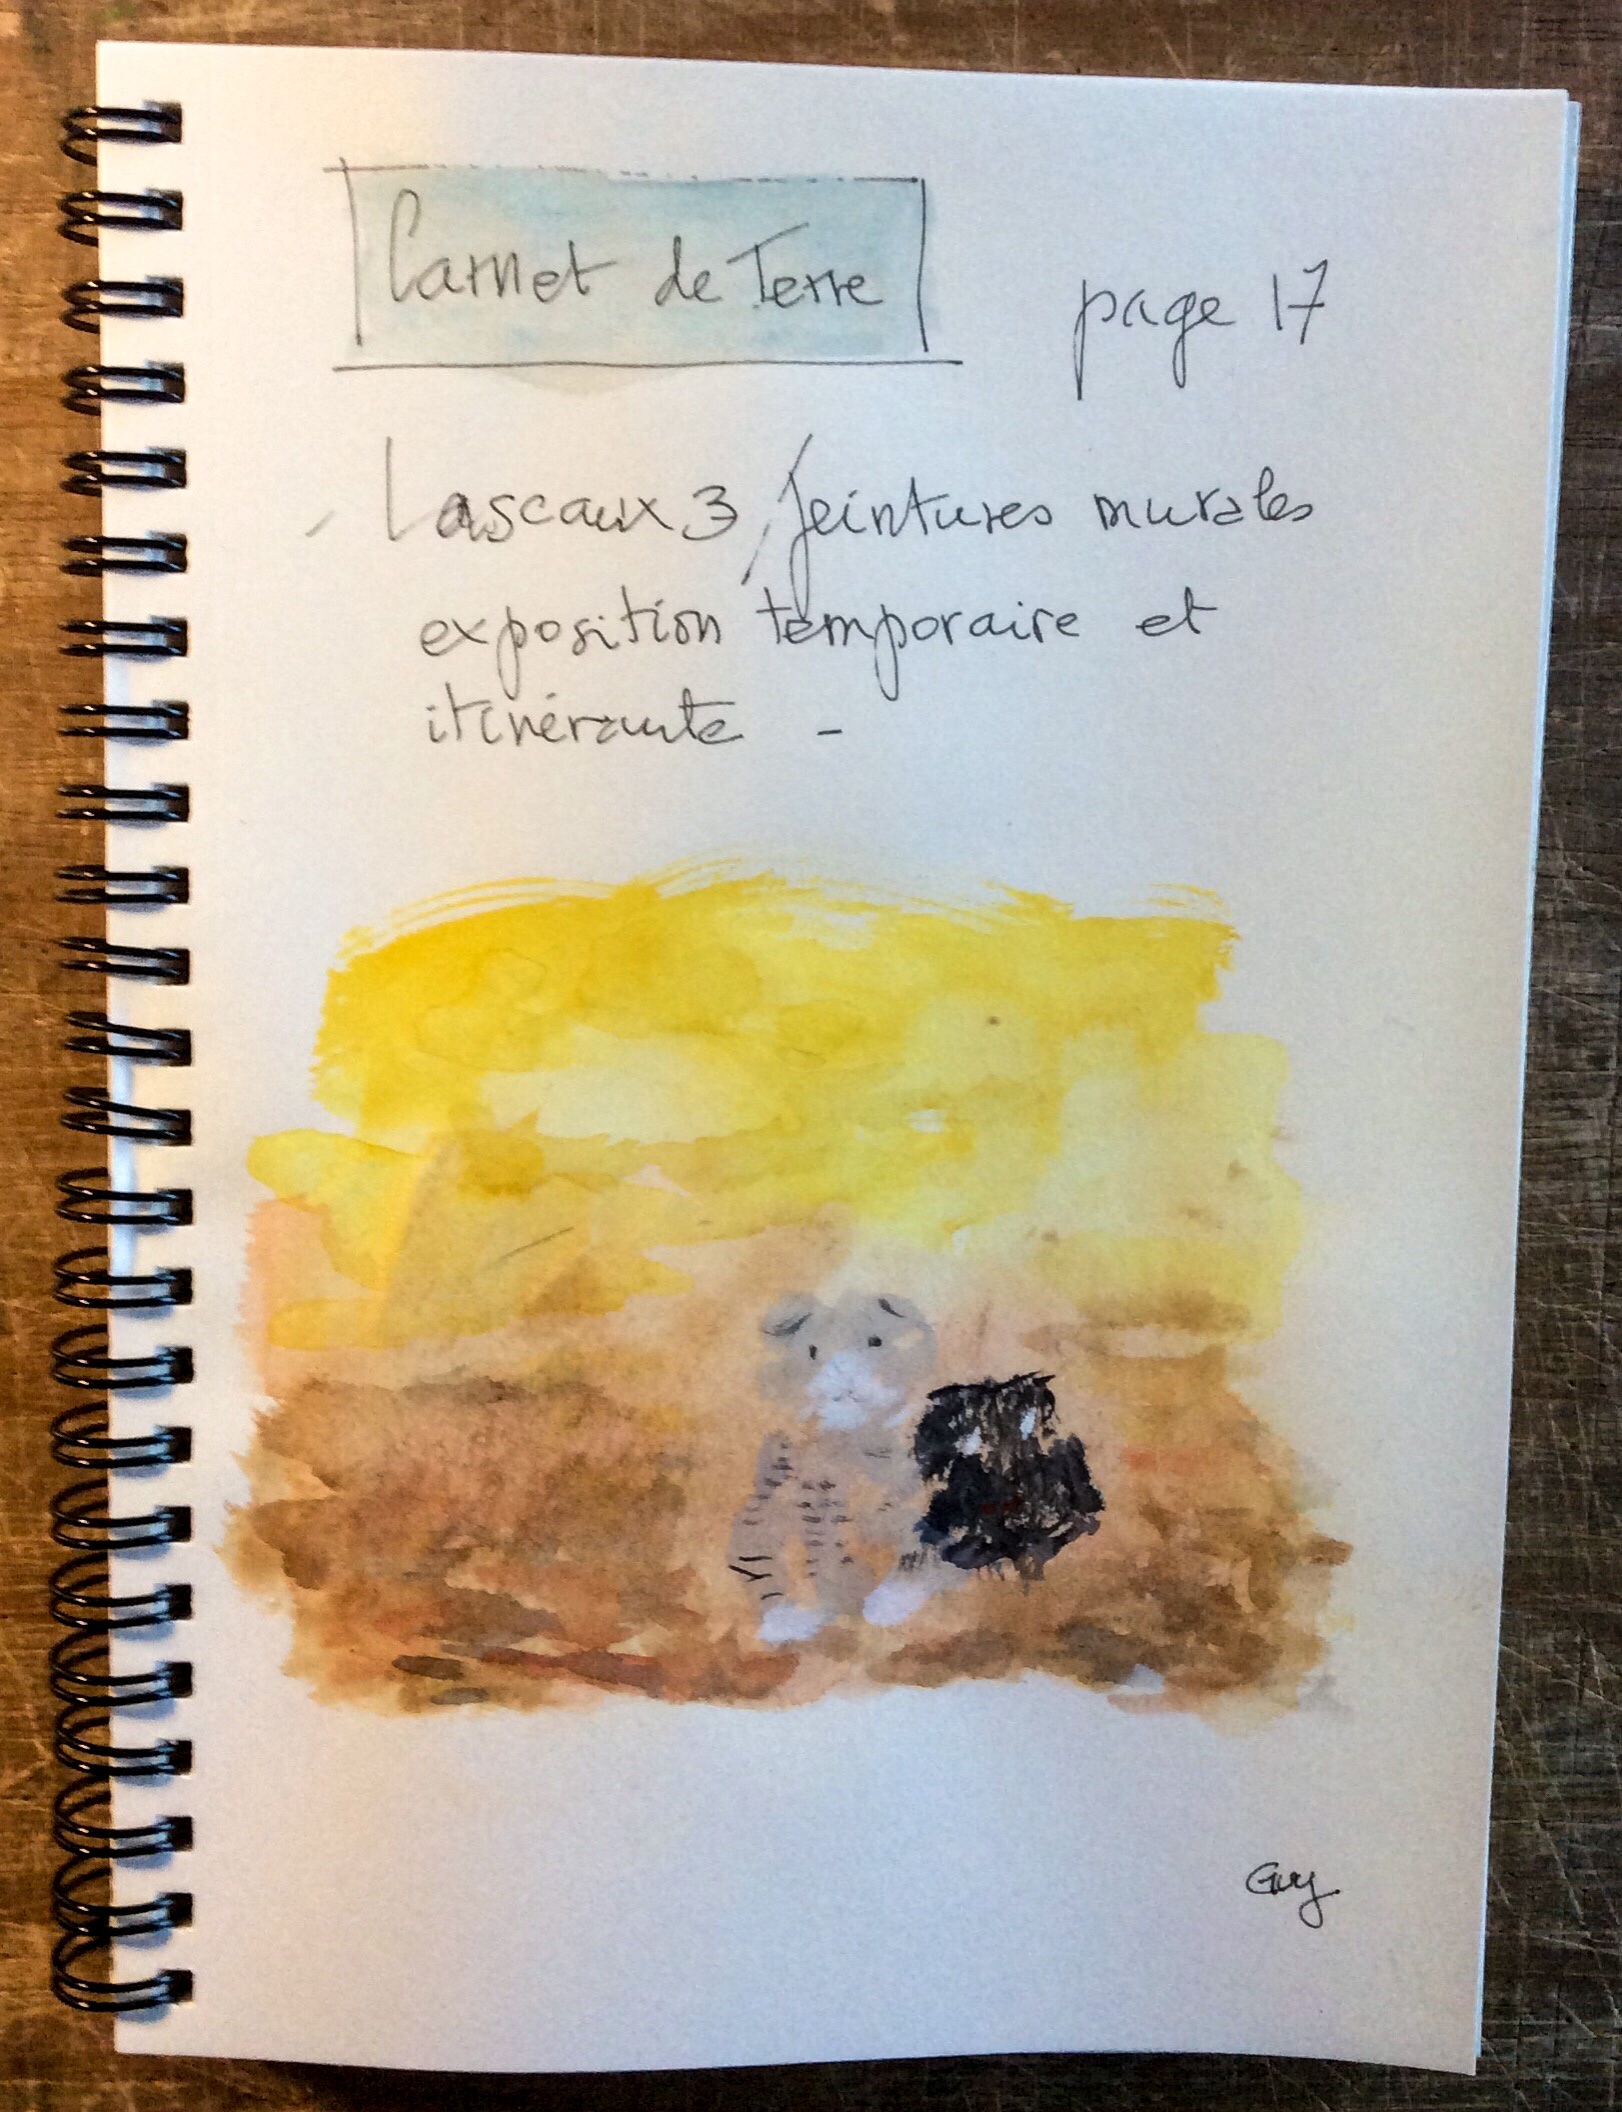 Carnet de Terre
page 17
Lascaux 3, peintures murales
exposition temporaire et
itinérante -
Guy